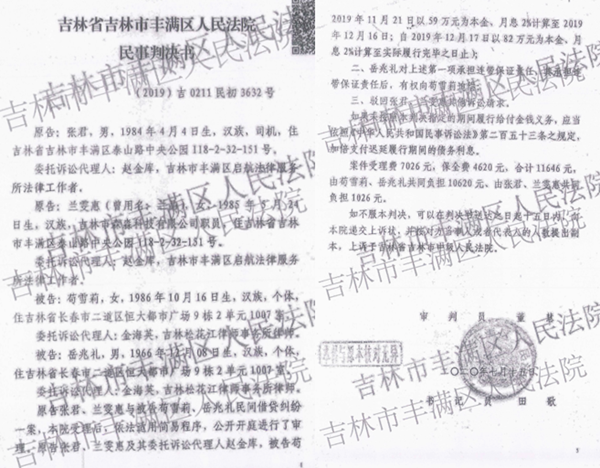 吉林省吉林市丰满区人民法院
民事判决书
(2019)吉0211民初3632号
原告：张君，男，1984年4月4日生，汉族，司机，住
吉林省吉林市丰满区泰山路中央公园118-2-32-151号。
委托诉讼代理人：赵金库，吉林市丰满区启航法律服务
所法律工作者。
原告：兰雯惠（曾用名：女，1985年5月24
日生，汉族，吉林市科技有限公司职员，住吉林省吉林
市丰满区泰山路中央公园118-2-32-151号。
委托诉讼代理人：赵金库，吉林市丰满区启航法律服务
所法律工作者。
被告：荀雪莉，女，1986年10月16日生，汉族，个体，
住吉林省长春市二道区恒大都市广场9栋2单元1007室。
委托诉讼代理人：金海英，吉林松花江律师事务所律师。
被告：岳兆礼，男，1966年12月08日生，汉族，个体，
住吉林省长春市二道区恒大都市广场9栋2单元1007室。
委托诉讼代理人：金海英，吉林松花江律师事务所律师。
原告张君、兰雯惠与被告荀雪莉、岳兆礼民间借贷纠纷
一案，本院受理后，依法适用简易程序，公开开庭进行了审
理。原告张君、兰雯惠及其委托诉讼代理人赵金库，被告荀
2019年11月21日以59万元为本金、月息2%计算至2019
年12月16日；自2019年12月17日以82万元为本金、月
息2%计算至实际履行完毕之日止）；
二、岳兆礼对上述第一项承担连带保证责任，承担连
带保证责任后，有权向荀雪莉追偿；
三、驳回张君、兰雯惠其他诉讼请求。
如果未按本判决指定的期间履行给付金钱义务，应当
依照《中华人民共和国民事诉讼法》第二百五十三条之规定，
加倍支付迟延履行期间的债务利息。
案件受理费7026元，保全费4620元，合计11646元，
由荀雪莉、岳兆礼共同负担10620元，由张君、兰雯惠共同
负担1026元。
如不服本判决，可以在判决书送达之日起十五日内，向
本院递交上诉状，并按对方当事人或者代表人的人数提出副
本，上诉于吉林省吉林市中级人民法院。
审判员 董慧
本件与原本核对无异
书记员 田歌
吉林市丰满区人民法院
吉林市丰满区人民法院
吉林市丰满区人民法院
吉林市丰满区人民法院